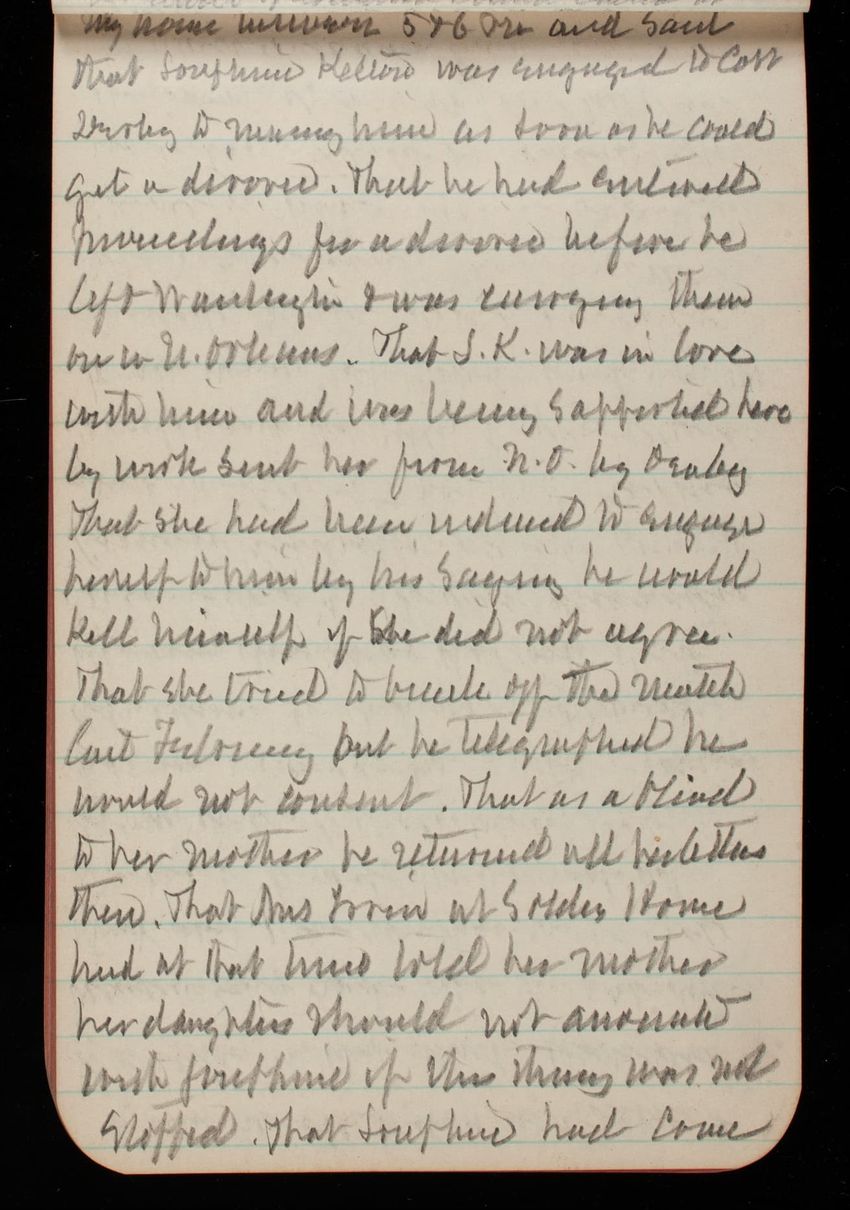 my house between 5 & 6 PM and said
that Josephine Kelton was engaged to Capt
Derby to marry him as soon as he could
get a divorce. That he had entered
proceedings for a divorce before he
left Washington & was carrying them
on in N. Orleans. That J. K. was in love
with him and was being supported here
by work sent her from N.O. by Derby
That she had been induced to engage
herself to him by his saying he would
kill himself if she did not agree.
That she tried to break off the match
last February but he telegraphed he
would not consent. That as a blind
to her mother he returned all her letters
then. That Mrs at Soldiers Home
had at that time told her mother
her daughters should not associate
with Josephine if this thing was not
stopped. That Josephine had come